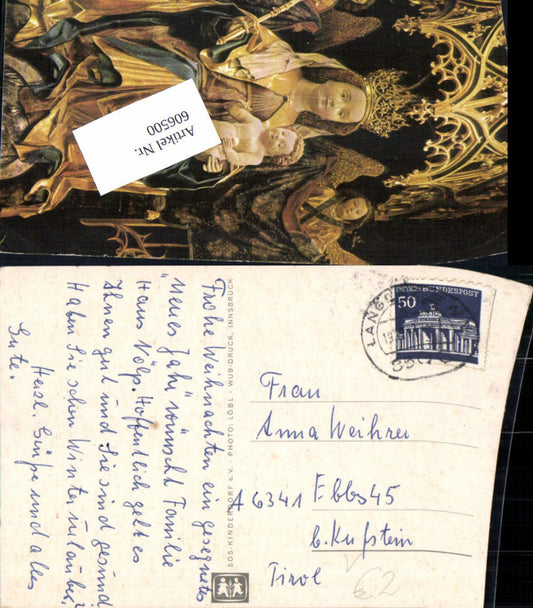 Artikel Nr.
606500
Frohe Weihnachten ein gesegnetes
"Neues Jahr" wünscht Familie
Hans Völp. Hoffentlich geht es
Ihnen gut und Sie sind gesund
Habn Sie schon Winterurlauber?
Gute.
Herzl. Grüße und alles
SOS-KINDERDORF e.V. PHOTO: LÖBL · WUB-DRUCK, INNSBRUCK
50
BUNDESPOST
LANG
Frau
Anna Weihrer
A 6341 Ebbs 45
b. Kufstein
Tirol
€2